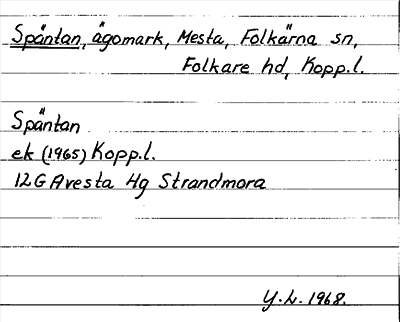 Späntan, ägomark, Mesta, Folkärna sn,
Folkare hd, Kopp.l.
Späntan
ek (1965) Kopp.l.
12G Avesta 4g Strandmora
Y.L. 1968.